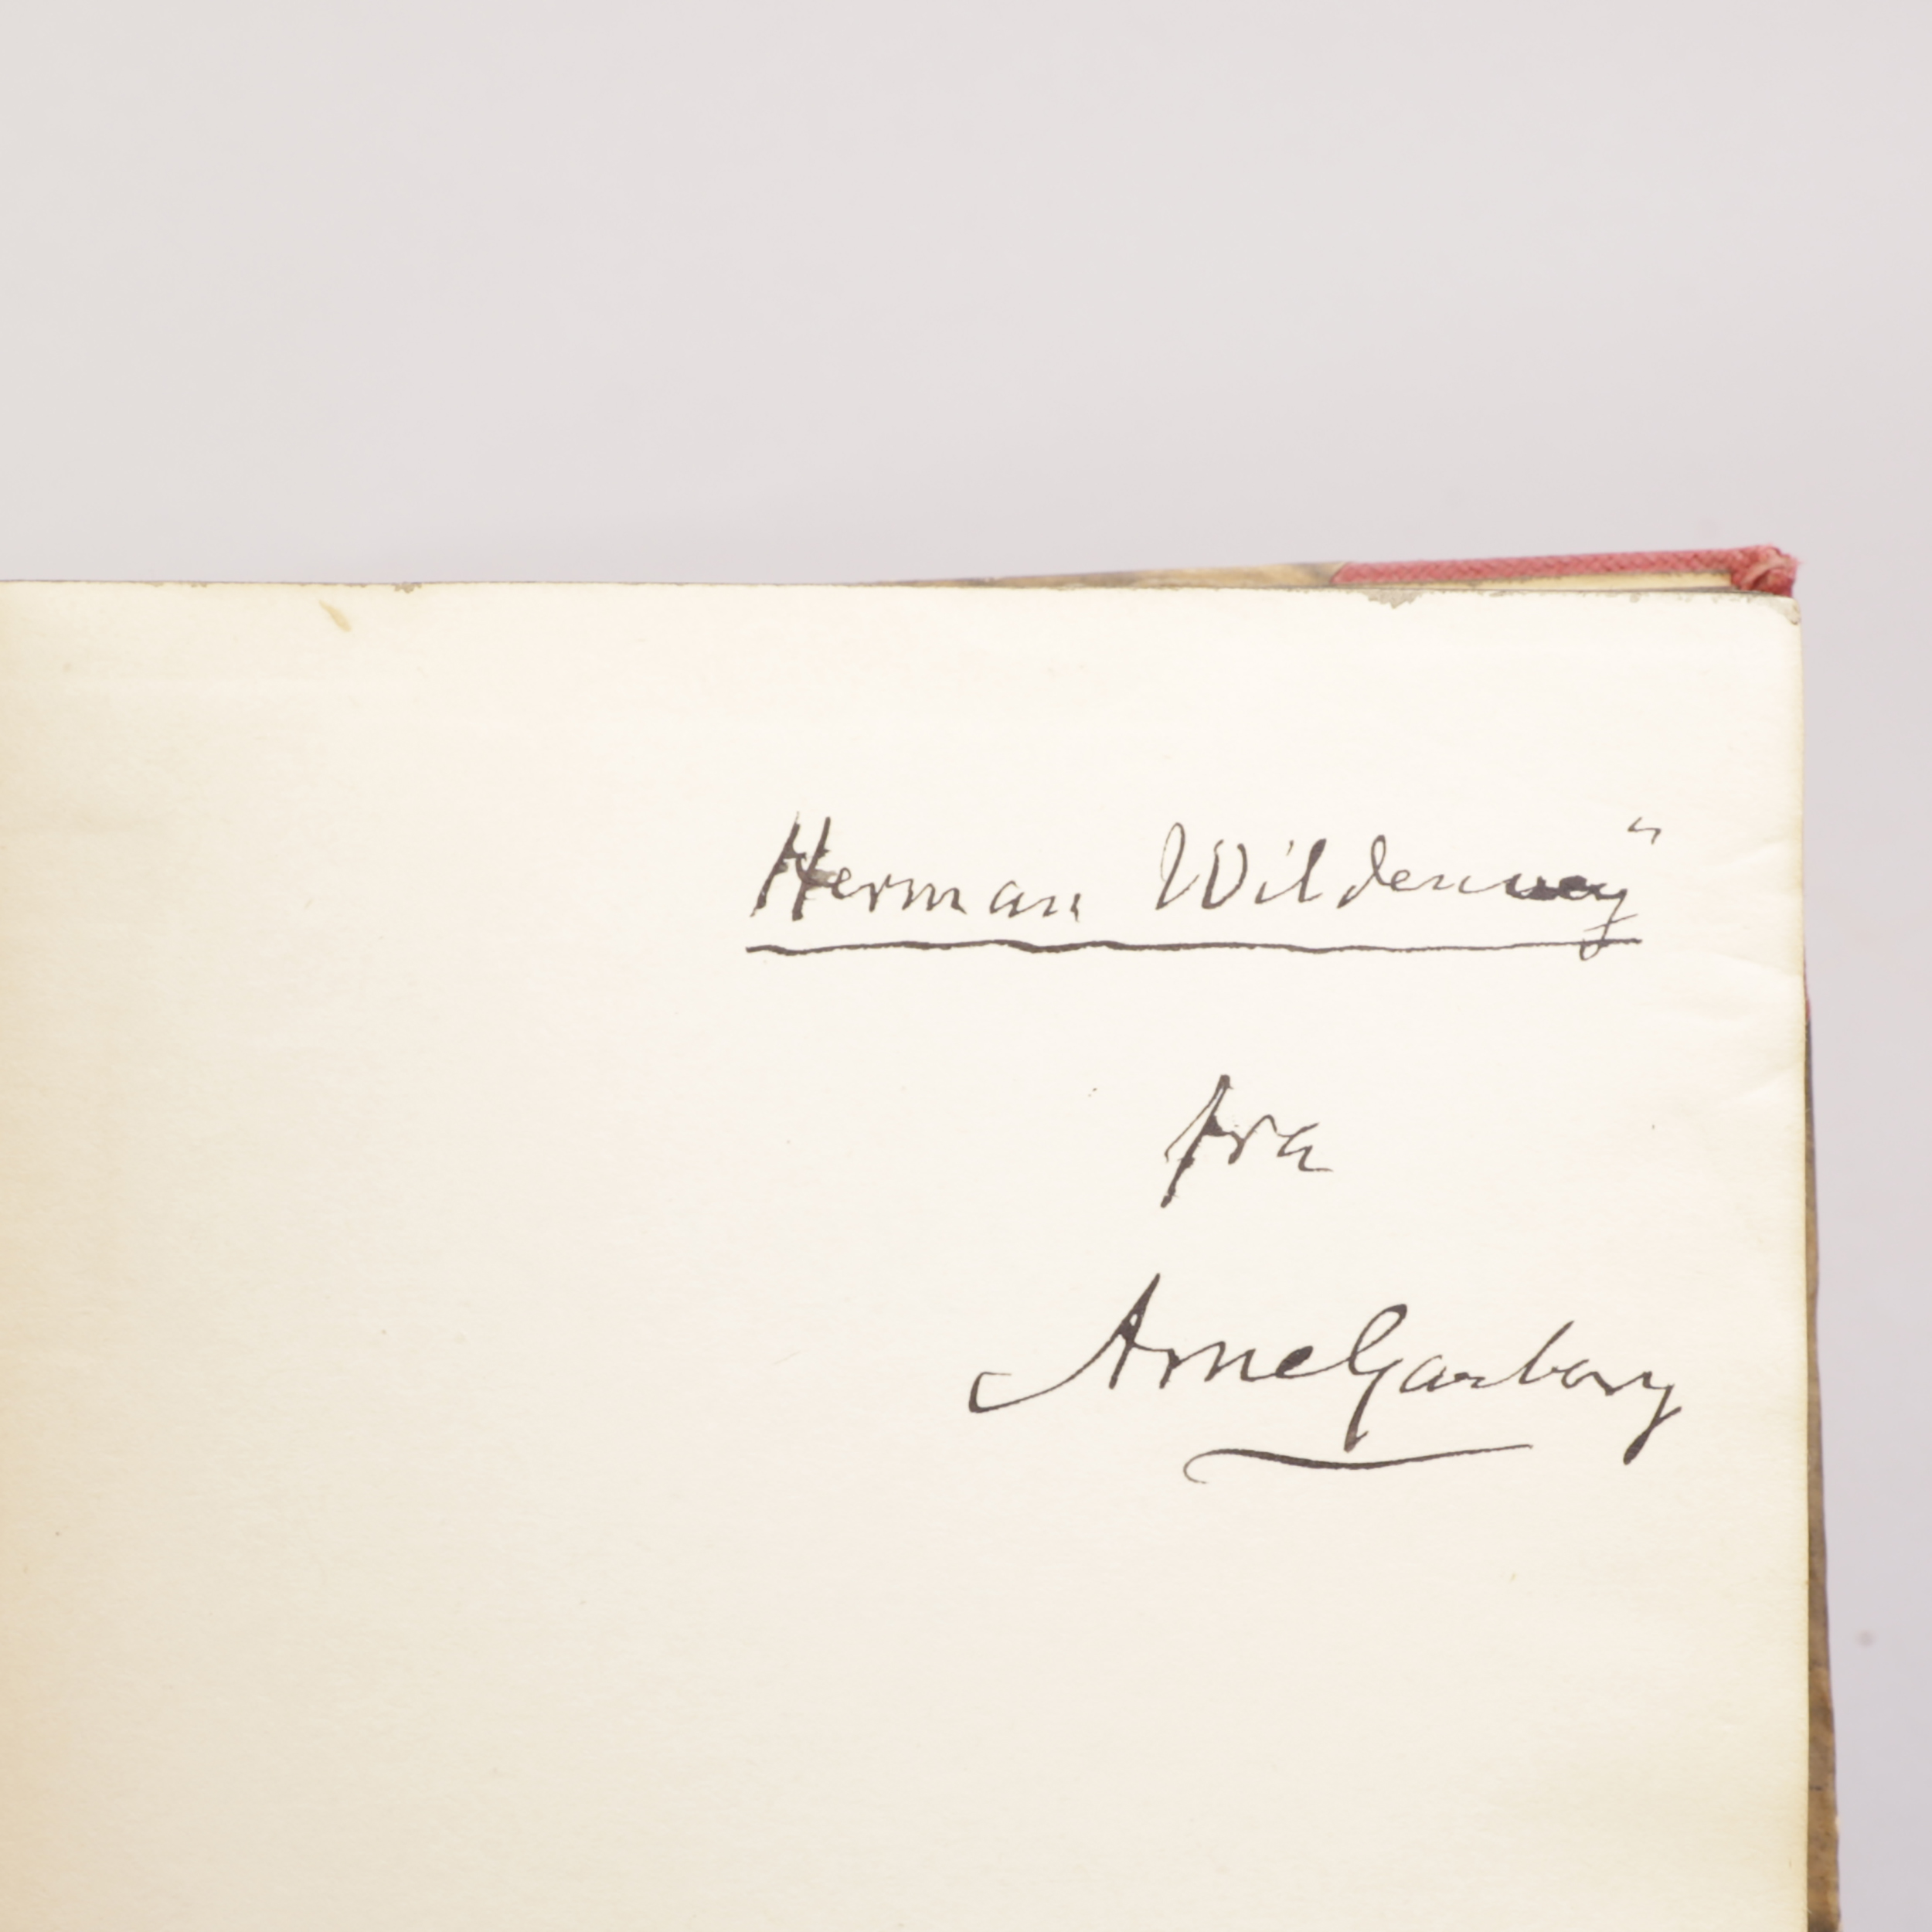 Herman Wildenwey
fra
Arne Garborg